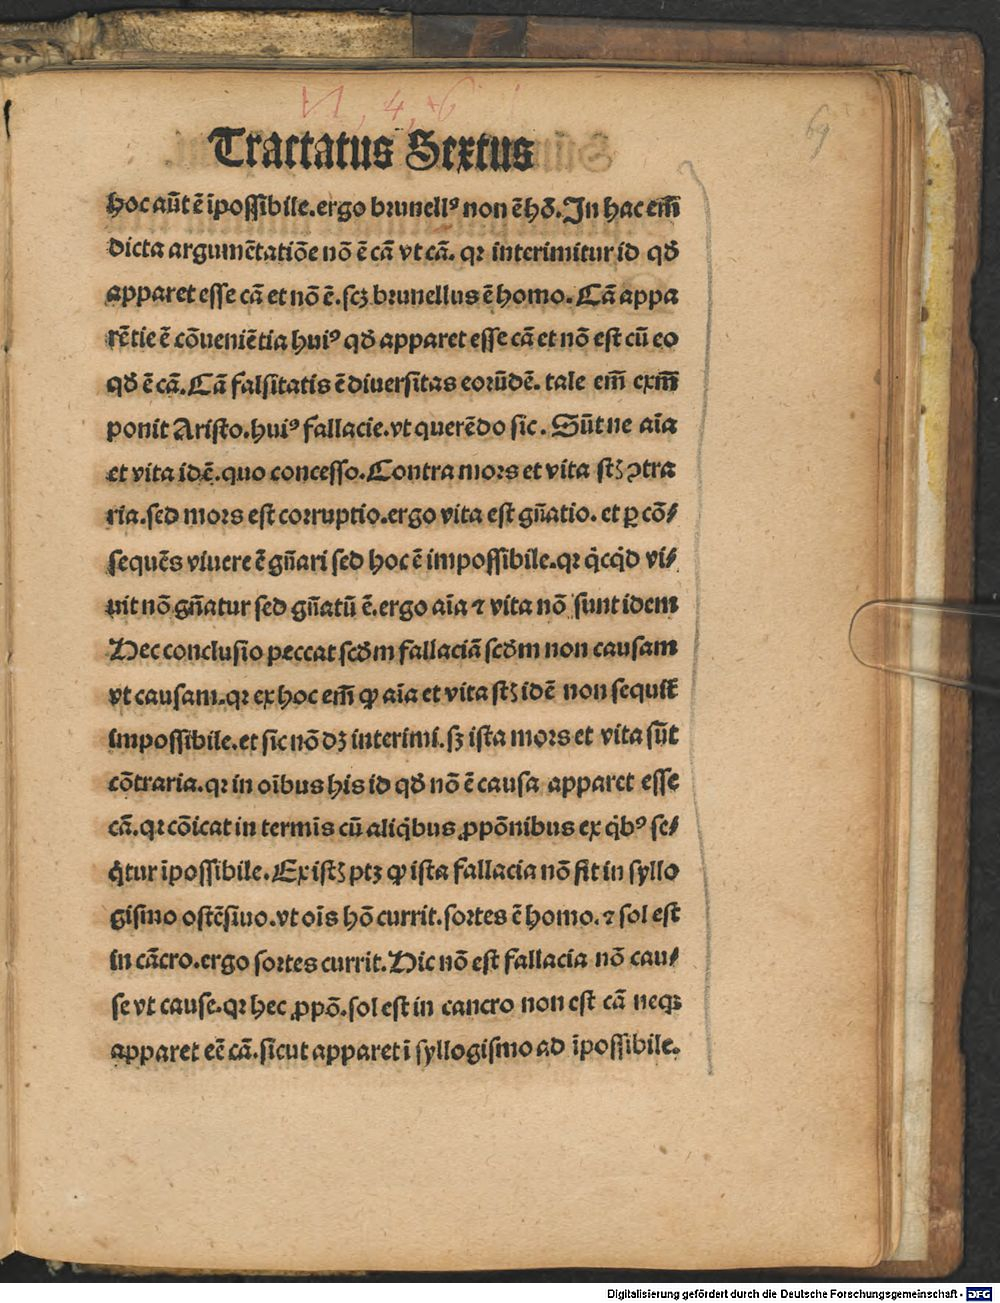 VI, 4, 6
69
Tractatus Sextus
hoc aūt ē īpossibile. ergo brunellꝰ non ē hō. In hac em̄
dicta argumētatiōe nō ē cā vt cā. qꝛ interimitur id qđ
apparet esse cā et nō ē. scꝫ brunellus ē homo. Cā appa
rētie ē cōueniētia huiꝰ qđ apparet esse cā et nō est cū eo
qđ ē cā. Cā falsitatis ē diuersitas eorūdē. tale em̄ exm̄
ponit Aristo. huiꝰ fallacie. vt querēdo sic. Sūt ne aīa
et vita idē. quo concesso. Contra mors et vita stꝫ ꝯtra
ria. sed mors est corruptio. ergo vita est gn̄atio. et ꝑ cō⸗
sequēs viuere ē gn̄ari sed hoc ē impossibile. qꝛ q̇cqd vi⸗
uit nō gn̄atur sed gn̄atū ē. ergo aīa ⁊ vita nō sunt idem
Hec conclusio peccat scđm fallaciā scđm non causam
vt causam. qꝛ ex hoc em̄ ꝙ aīa et vita stꝫ idē non sequit᷑
impossibile. et sic nō dꝫ interimi. sꝫ ista mors et vita sūt
cōtraria. qꝛ in oībus his id qđ nō ē causa apparet esse
cā. qꝛ cōicat in termīs cū aliq̇bus ꝓpōnibus ex q̇bꝰ se⸗
q̇tur īpossibile. Ex istꝫ ptꝫ ꝙ ista fallacia nō fit in syllo
gismo ostēsiuo. vt oīs hō currit. sortes ē homo. ⁊ sol est
in cācro. ergo sortes currit. Hic nō est fallacia nō cau⸗
se vt cause. qꝛ hec ꝓpō. sol est in cancro non est cā neqꝫ
apparet eē cā. sicut apparet ī syllogismo ad īpossibile.
Digitalisierung gefördert durch die Deutsche Forschungsgemeinschaft - DFG